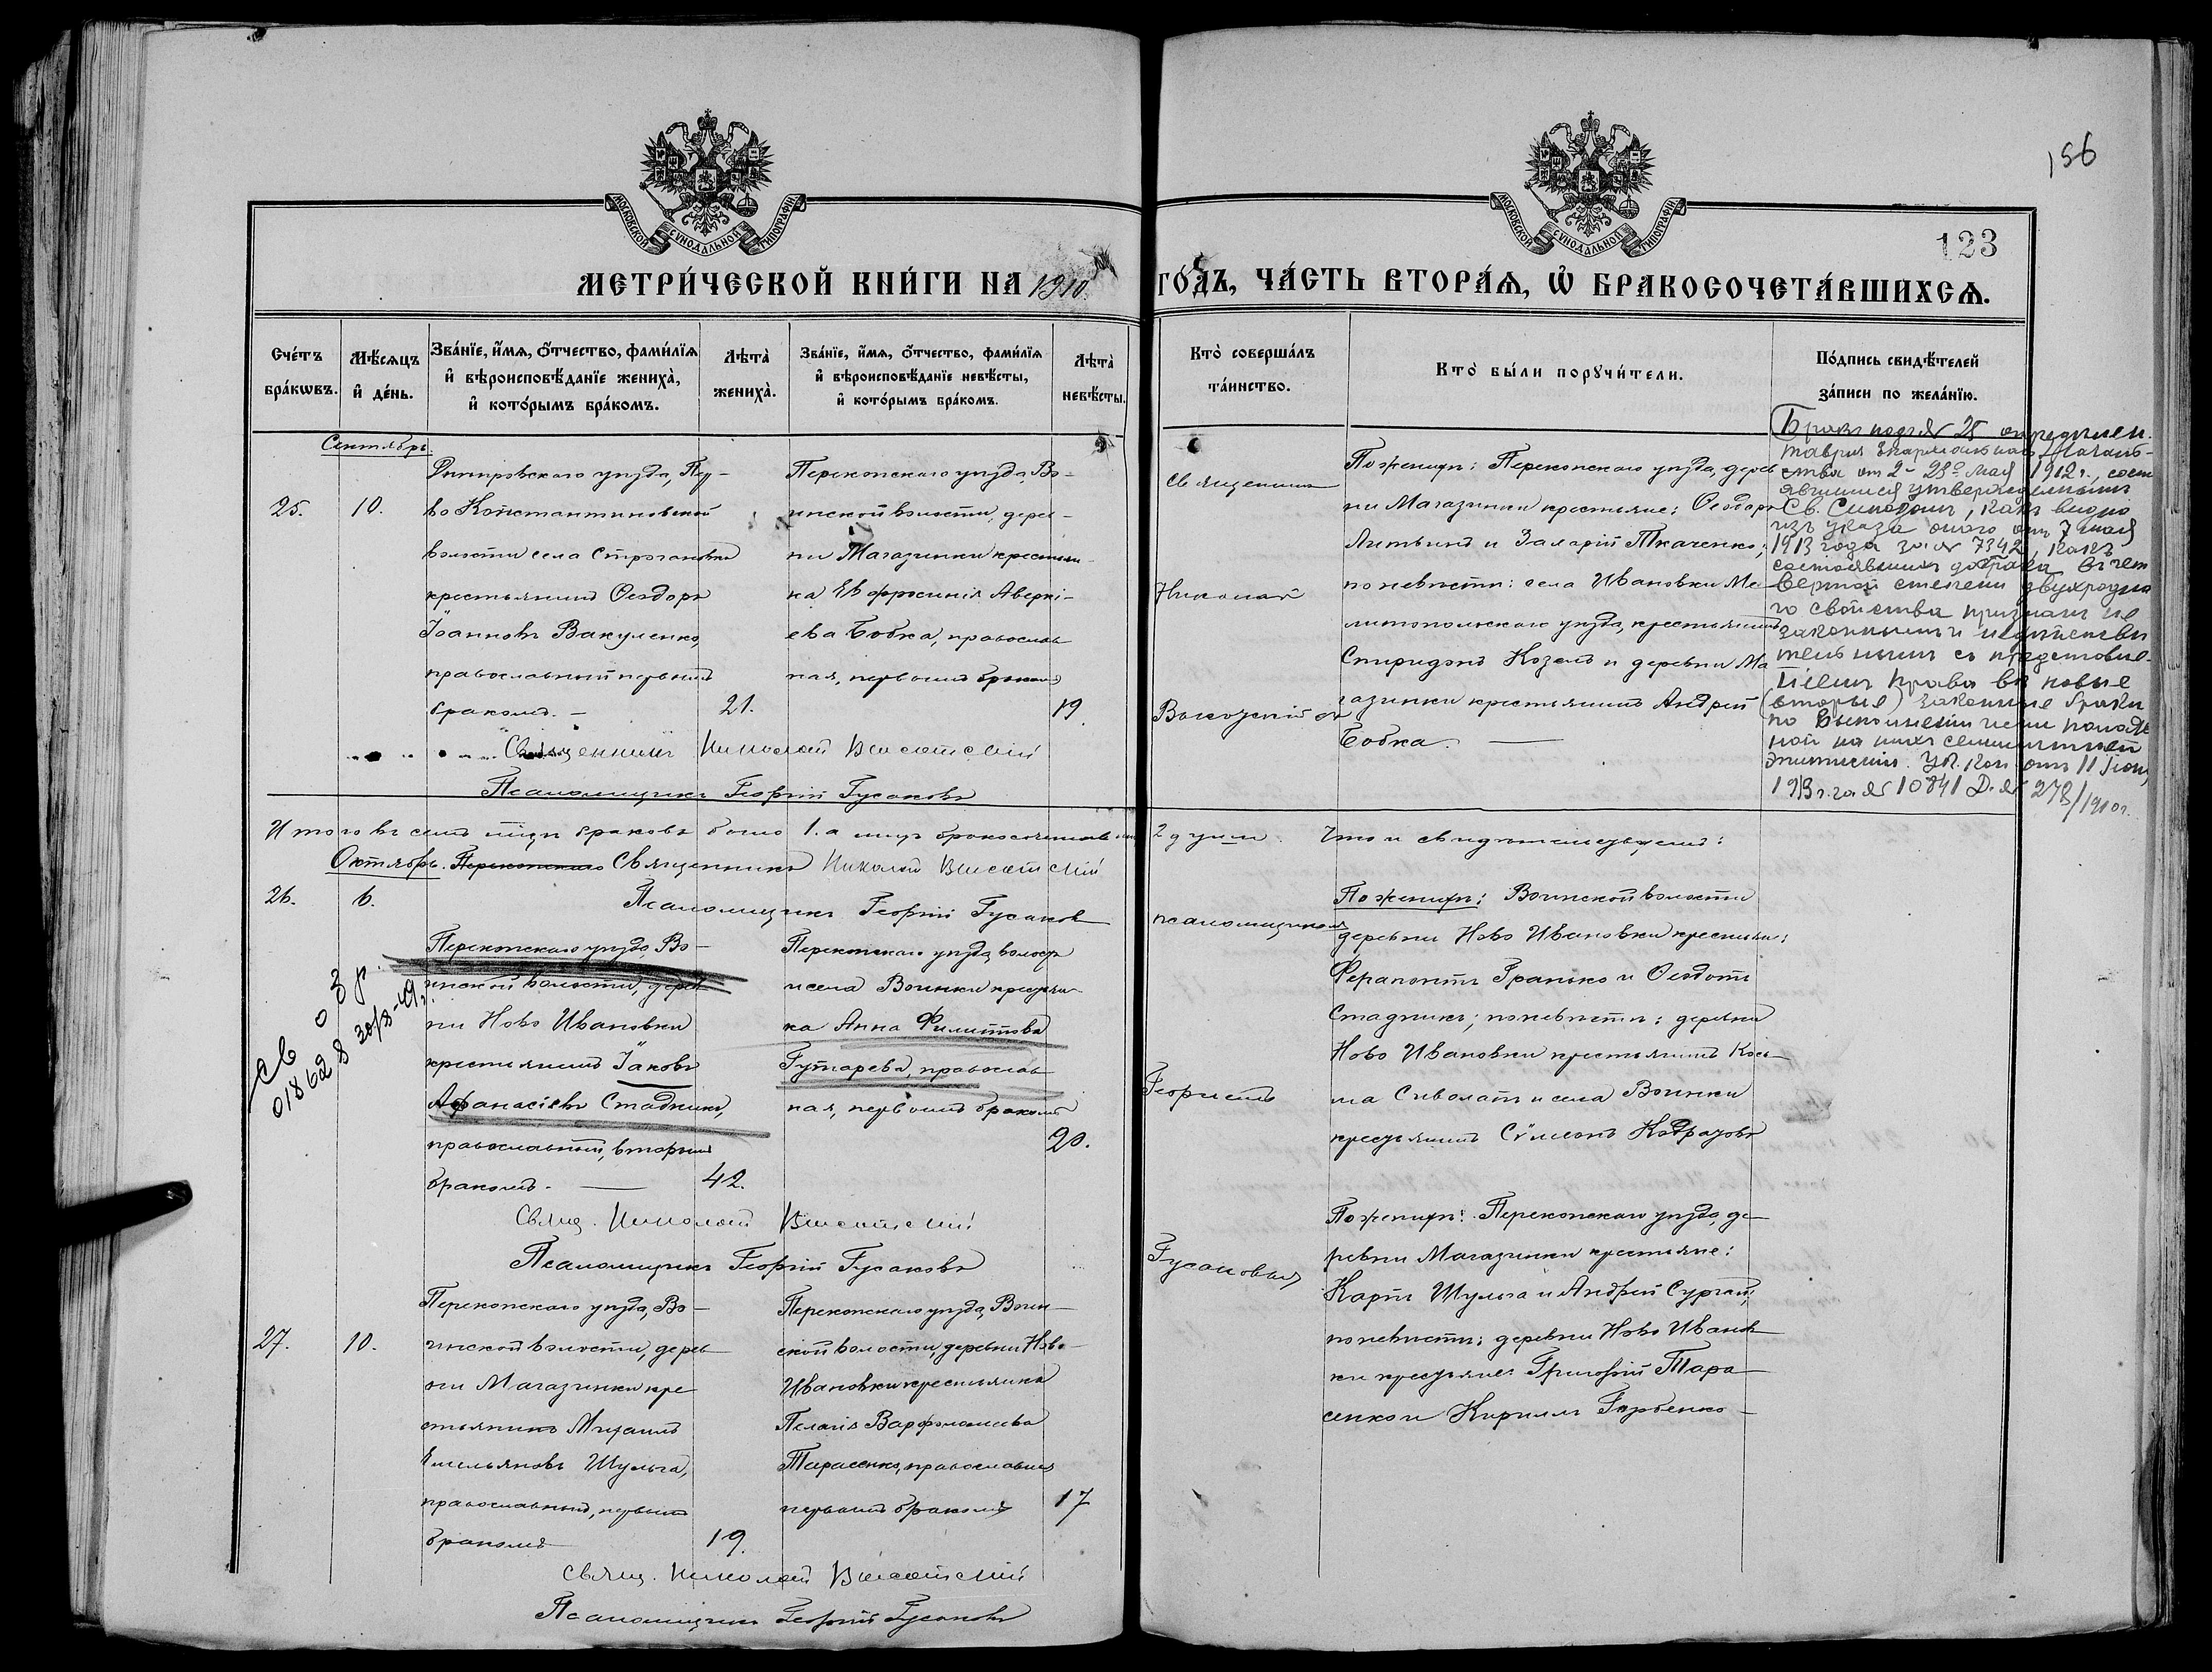 156
123
МОСКОВСКОЙ СѴНОДАЛЬНОЙ ТИПОГРАФІИ
МОСКОВСКОЙ СѴНОДАЛЬНОЙ ТИПОГРАФІИ
МЕТРИ́ЧЕСКОЙ КНИ́ГИ НА 1910 ГО́ДЪ, ЧА́СТЬ ВТОРА́Ѧ, Ѽ БРАКОСОЧЕТА́ВШИХСѦ.
Сче́тъ бра́кѡвъ.
Мѣ́сѧцъ и҆ де́нь.
Зва́нїе, и҆́мѧ, ѻ҆́тчество, фами́лїѧ и҆ вѣроисповѣ́данїе жениха̀, и҆ кото́рымъ бра́комъ.
Лѣта̀ жениха̀.
Зва́нїе, и҆́мѧ, ѻ҆́тчество, фами́лїѧ и҆ вѣроисповѣ́данїе невѣ́сты, и҆ кото́рымъ бра́комъ.
Лѣта̀ невѣ́сты.
Кто̀ соверша́лъ та́инство.
Кто̀ бы́ли порꙋчи́тели.
По́дпись свидѣ́телей за́писи по жела́нїю.
Сентябрь.
25.
10.
Днѣпровскаго уѣзда, Пу-
во Константиновской
волости села Строгановки
крестьянинъ Ѳеодоръ
Іоанновъ Вакуленко,
православный первымъ
бракомъ. —
21.
Перекопскаго уѣзда Во-
инской волости, дерев-
ни Магазинки крестьян-
ка Евфросинія Аверкі-
ева Бобка, православ
ная, первымъ бракомъ
19
Священникъ
Николай
По женихѣ: Перекопскаго уѣзда, дерев
ни Магазинки крестьяне: Ѳеодоръ
Литвинъ и Захарій Ткаченко;
по невѣстѣ: села Ивановки Ме-
литопольскаго уѣзда, крестьянинъ
Спиридонъ Козелъ и деревни Ма
газинки крестьянинъ Андрей
Бобка. —
Бракъ подъ № 25 опредѣлен.
Таврич Епархіальнаго Началь-
ства от 2 - 28º мая 1912 г., сост
явшимся утвержденнымъ
Св. Синодомъ, какъ видно
изъ указа онаго отъ 7 мая
1913 года за № 7342, какъ
состоявшимся до брака въ чет
вертой степени двухродна
го свойства признанъ не
законнымъ и недѣйстви
тельнымъ съ предоставле-
ніемъ права въ новые
(вторые) законные браки
по выполненіи ими
ной на нихъ семилѣтней
эпитиміи. Ук. Кон. отъ 11 Іюня
1913 г. за № 10841 Д. № 278/1910 г.
Священникъ Николай
Псаломщикъ Георгій Гусаковъ
Итого въ семъ мѣсяцѣ браковъ было 1. а лицъ бракосочетавшихся 2 души. Что и свидѣтельствуемъ:
Октябрь. Перекопскаго Священникъ Николай
Псаломщикъ Георгій Гусаковъ
26.
6.
Св о З р.
018628 30/8-49 г.
Перекопскаго уѣзда, Во-
инской волости, дерев-
ни Ново Ивановки
крестьянинъ Іаковъ
Аѳанасіевъ Стадникъ,
православный, вторымъ
бракомъ. —
42.
Перекопскаго уѣзда волости
и села Воинки крестьян
ка Анна Филиппова
Гутарева, православ
ная, первымъ бракомъ
20.
псаломщикомъ
Георгіемъ
Гусаковымъ
По женихѣ: Воинской волости
деревни Ново Ивановки крестьяне:
Ферапонтъ Гранько и Ѳеодотъ
Стадникъ; по невѣстѣ: деревни
Ново Ивановки крестьянинъ Кось-
ма Сиволапъ и села Воинки
крестьянинъ Сѵмеонъ
Свящ. Николай
Псаломщикъ Георгій Гусаковъ
27.
10.
Перекопскаго уѣзда, Во-
инской волости, дерев-
ни Магазинки кре
стьянинъ Михаилъ
Емельяновъ Шульга,
православный, первымъ
бракомъ
19.
Перекопскаго уѣзда, Воин-
ской волости, деревни Ново-
Ивановки крестьянка
Пелагія Варфоломеева
Тарасенко, православная
первымъ бракомъ
17
По женихѣ: Перекопскаго уѣзда, де-
ревни Магазинки крестьяне:
Карпъ Шульга и Андрей Сургай,
по невѣстѣ: деревни Ново Иванов-
ки крестьяне: Григорій Тара-
сенко и Кириллъ Горбенко —
Свящ. Николай
Псаломщикъ Георгій Гусаковъ